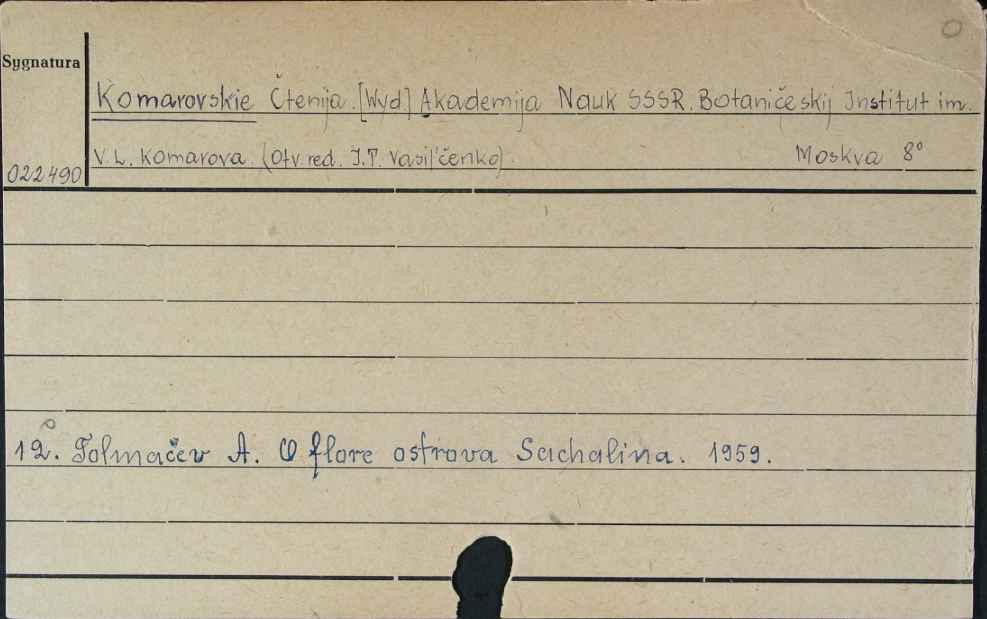 Sygnatura
Komarovskie Čtenija. [Wyd] Akademija Nauk SSSR. Botaničeskij Institut im.
V. L. Komarova. (Otv. red. I. T. Vasil'čenko). Moskva 8°
022490
12. Tolmačev A. O flore ostrova Sachalina. 1959.